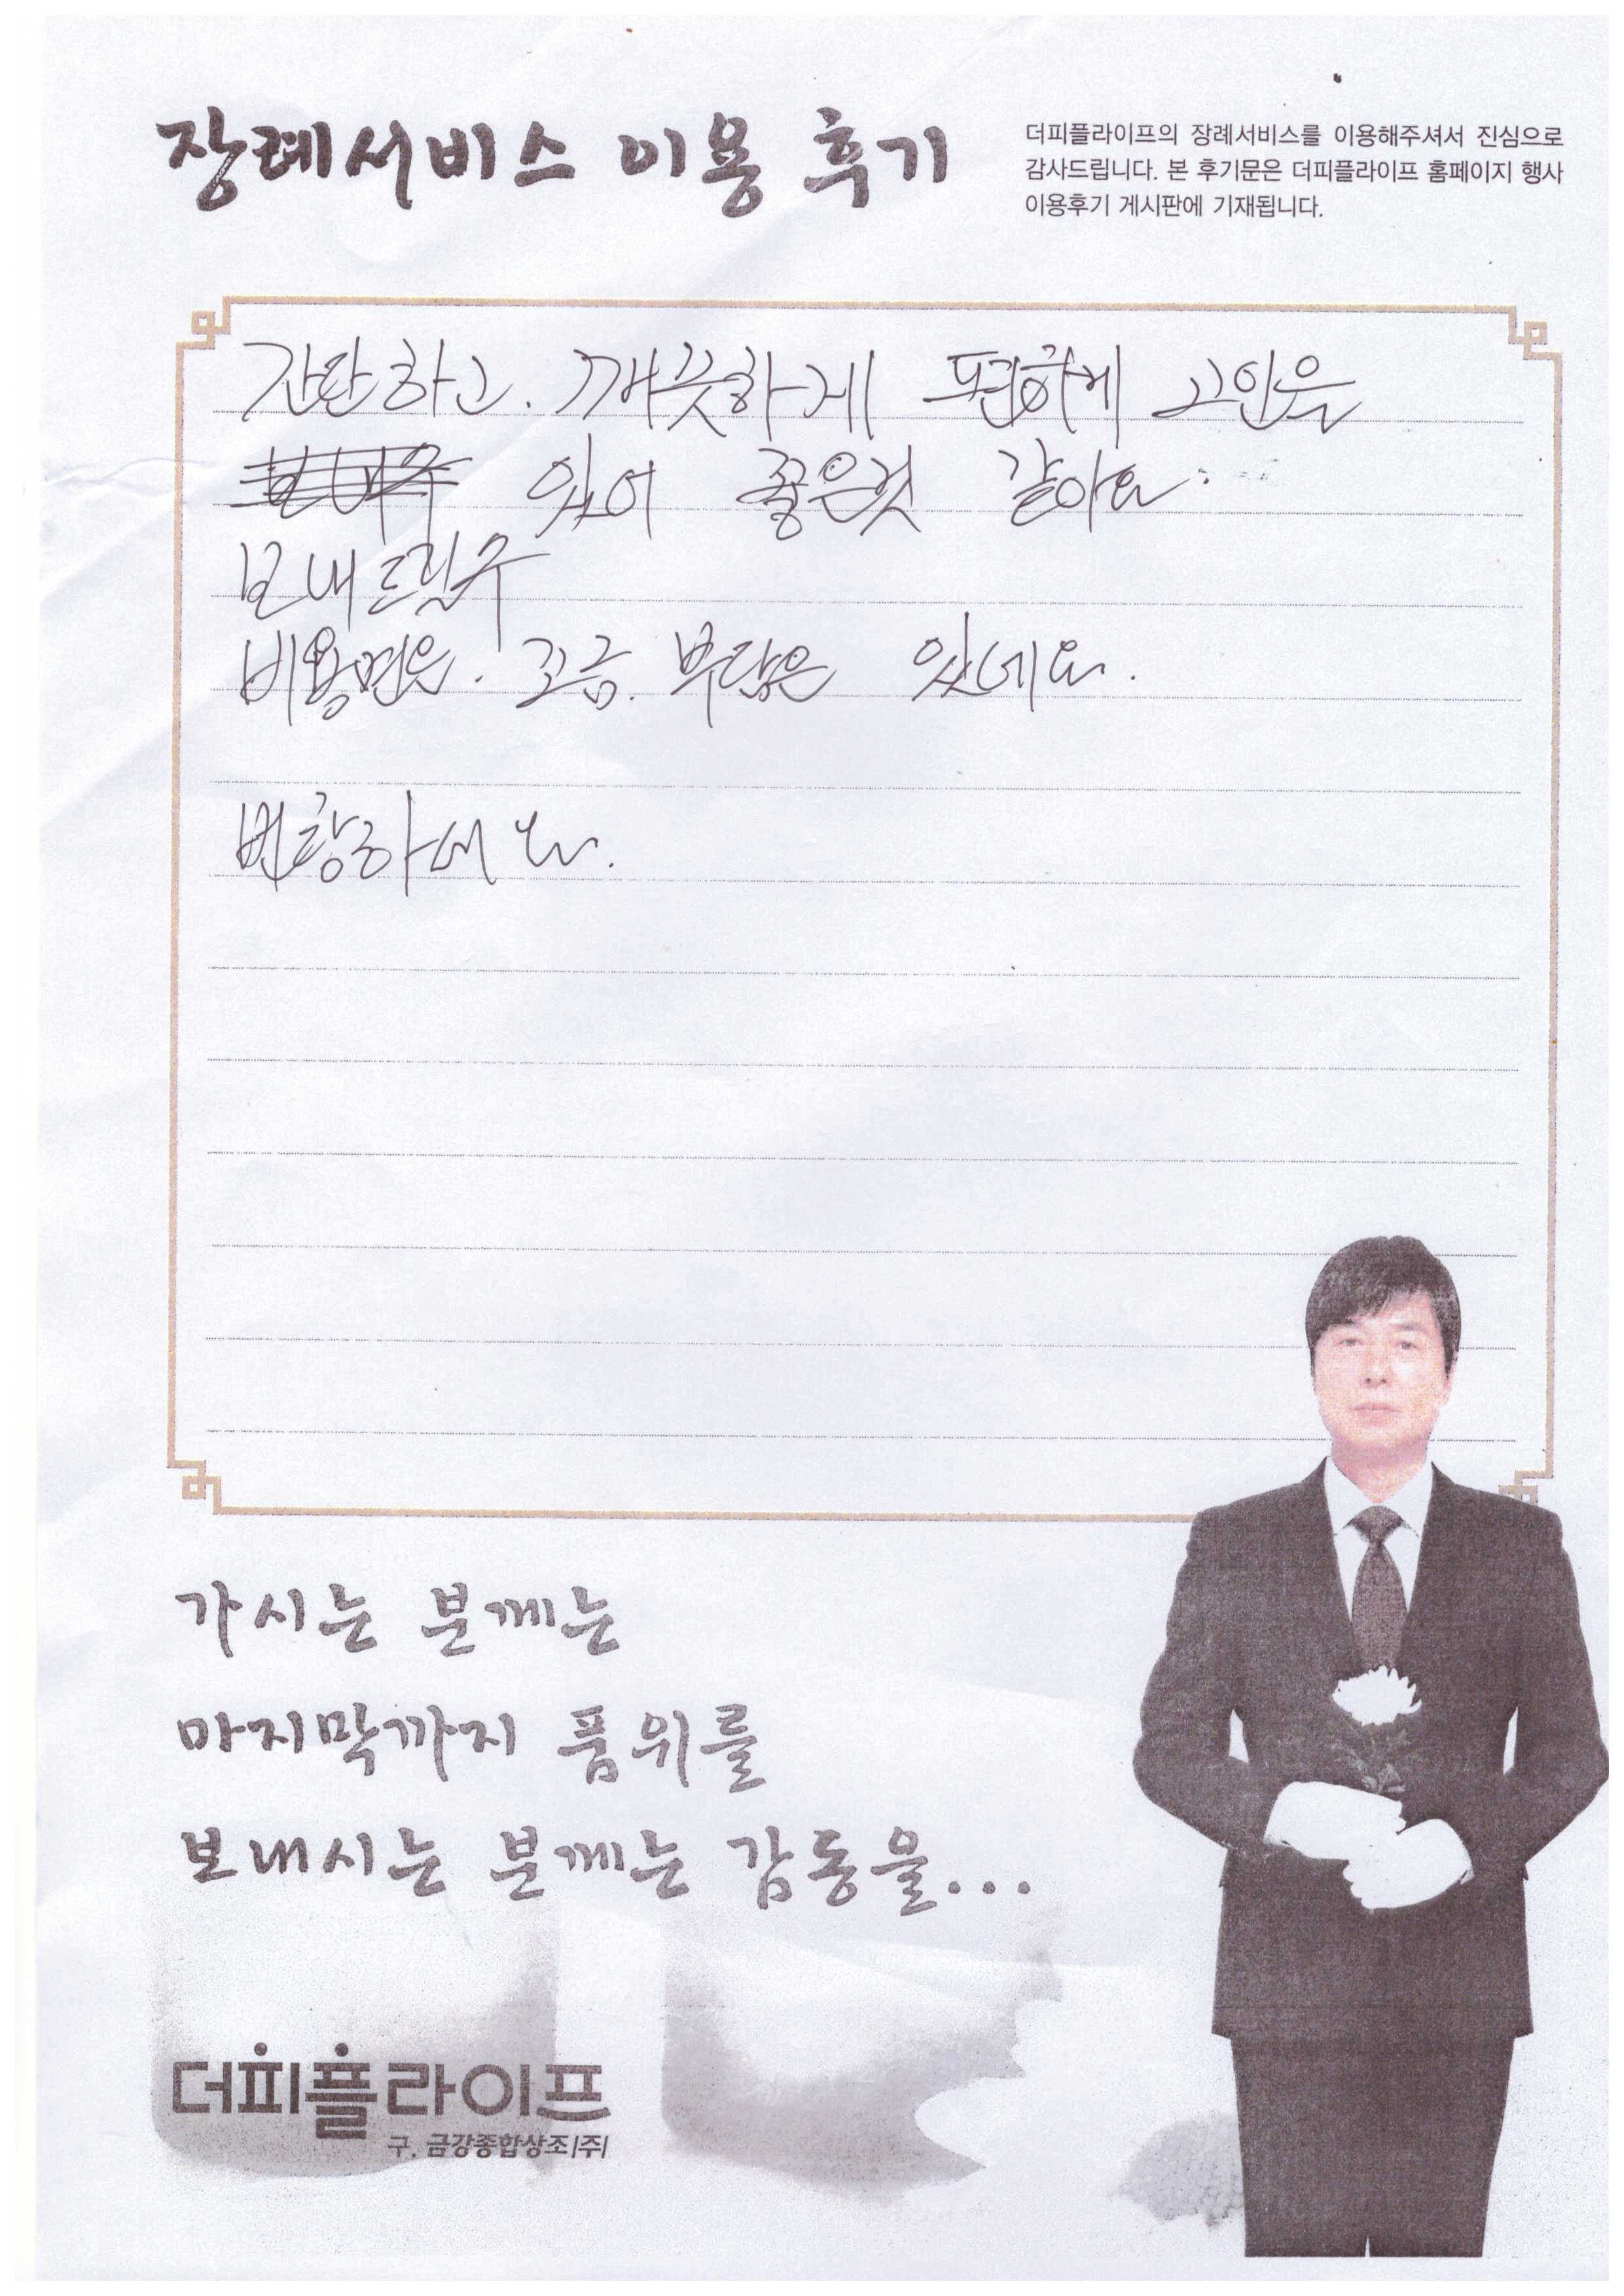 장례서비스 이용 후기
더피플라이프의 장례서비스를 이용해주셔서 진심으로
감사드립니다. 본 후기문은 더피플라이프 홈페이지 행사
이용후기 게시판에 기재됩니다.
간단하고. 깨끗하게 편하게 고인을
있어 좋은것 같아요.
보내드릴수
비용면은. 조금. 부담은 있네요.
번창하세요.
가시는 분께는
마지막까지 품위를
보내시는 분께는 감동을...
더피플라이프
구. 금강종합상조(주)